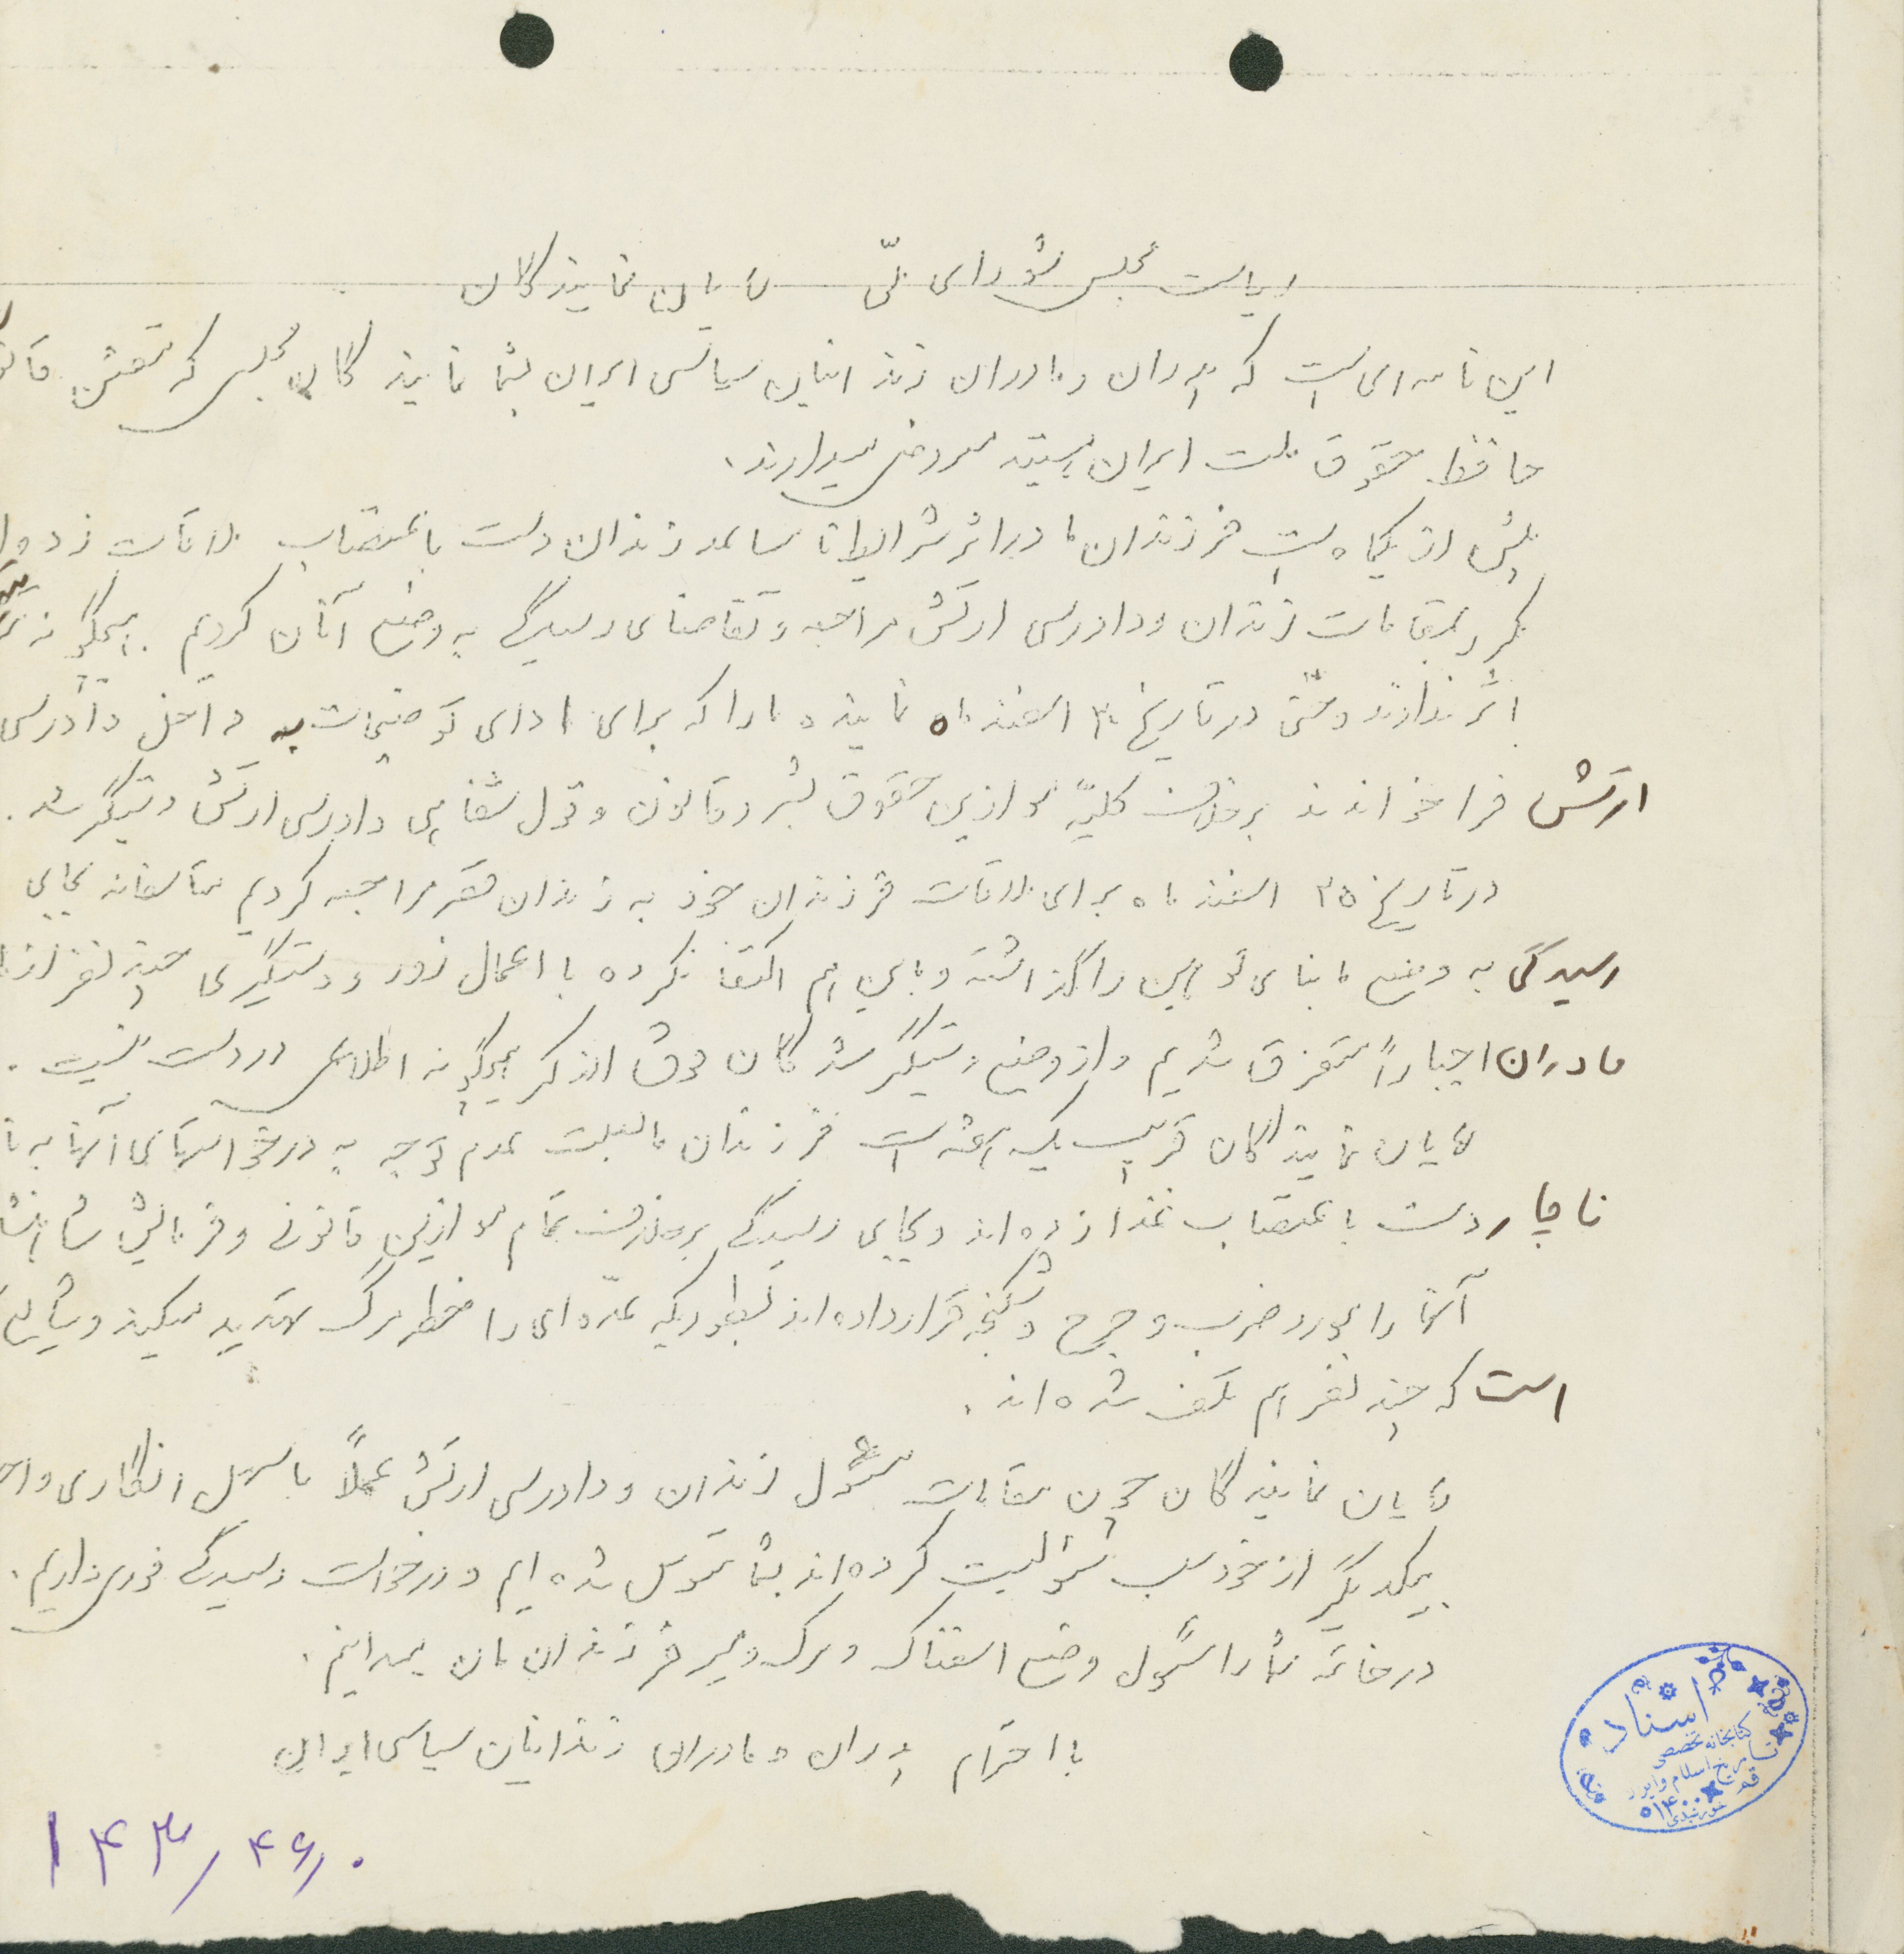 ریاست مجلس شورای ملّی آقایان نمایندگان
این نامه‌ای است که پدران و مادران زندانیان سیاسی ایران بشما نمایندگان مجلس که متعین
حافظ حقوق ملت ایران هستید معروض میدارند.
بیش از یکماه است فرزندان ما در اثر شرایط نامساعد زندان دست باعتصاب ملاقات زده و
مکرر بمقامات زندان و دادرسی ارتش مراجعه و تقاضای رسیدگی به وضع آنان کردیم. هیچگونه
اثر نداد و حتی در تاریخ ۳۰ اسفند ماه نماینده ما را که برای ادای توضیحات به داخل دادرسی
ارتش فراخواندند برخلاف کلیّه موازین حقوق بشر و قانون و قول شفاهی دادرسی ارتش دستگیر شد.
در تاریخ ۲۵ اسفند ماه برای ملاقات فرزندان خود به زندان قصر مراجعه کردیم متاسفانه بجای
رسیدگی به وضع ما بنای توهین را گذاشته و باین هم اکتفا نکرده با اعمال زور و دستگیری چند نفر از
مادران اجباراً متفرق شدیم و از وضع دستگیر شدگان فوق الذکر هیچگونه اطلاعی در دست نیست.
آقایان نمایندگان قریب یک هفته است فرزندان ما بعلت عدم توجه به درخواستهای آنها به
ناچار دست باعتصاب غذا زده‌اند و بجای رسیدگی برخلاف تمام موازین قانونی و فرمایش
آنها را مورد ضرب و جرح و شکنجه قرار داده‌اند بطوریکه عدّه‌ای را خطر مرگ تهدید میکند و شایع
است که چند نفر هم تلف شده‌اند.
آقایان نمایندگان چون مقامات مسئول زندان و دادرسی ارتش عملاً با سهل انگاری و
بیکدیگر از خود سلب مسئولیت کرده‌اند بشما متوسل شده‌ایم و درخواست رسیدگی فوری داریم.
در خاتمه شما را مسئول وضع اسفناک و مرگ و میر فرزندان مان میدانیم.
با احترام پدران و مادران زندانیان سیاسی ایران
اسناد
کتابخانه تخصصی
تاریخ اسلام و ایران
قم
۱۴۳/۴۶/۰